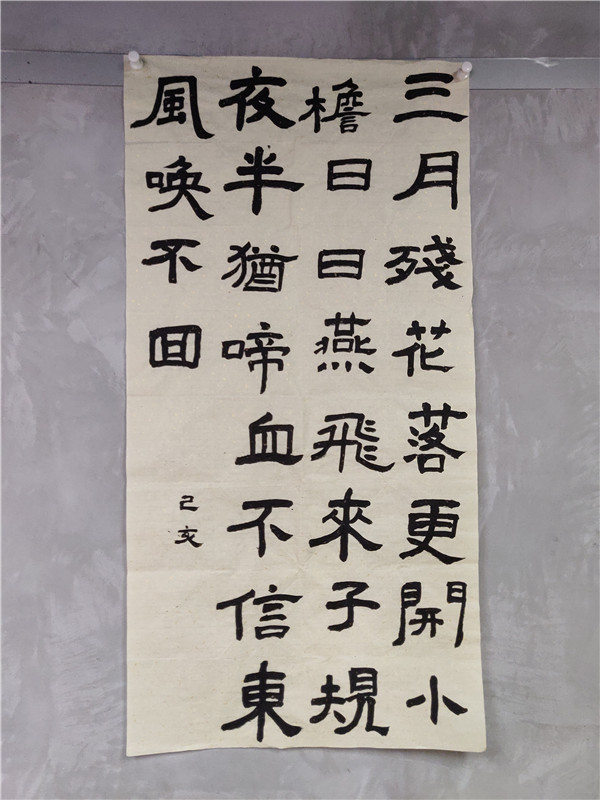 三月殘花落更開小
檐日日燕飛來子規
夜半猶啼血不信東
風唤不回
己亥